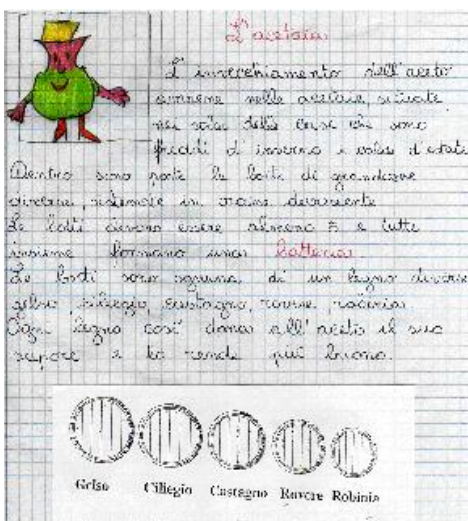 L'acetaia
L'invecchiamento dell'aceto
avviene nelle acetaie, situate
nei solai delle case che sono
freddi d'inverno e caldi d'estate
Dentro sono poste le botti di grandezze
diverse, sistemate in ordine decrescente
Le botti devono essere almeno 5 e tutte
insieme formano una batteria.
Le botti sono ognuna di un legno diverso
gelso, ciliegio, castagno, rovere, robinia.
Ogni legno così dona all'aceto il suo
sapore e lo rende più buono.
Gelso Ciliegio Castagno Rovere Robinia